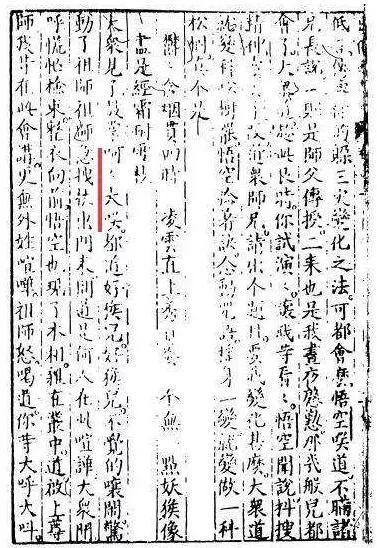 低言傳與你的躲三災變化之法可都會麽悟空笑道不瞞諸
兄長說一則是師父傳授二來也是我晝夜慇懃那幾般兒都
會了大眾道趁此良時你試演演讓我等看看悟空聞說抖搜
精神賣弄手段道衆師兄請出个題目要我變化甚麽大衆道
就變科松樹罷悟空捻着訣念動咒語搖身一變就變做一科
松樹真个是
欝欝含烟貫四時　凌雲直上秀貞姿　全無一點妖猴像
盡是經霜耐雪枝
大衆見了鼓掌呵呵大笑都道好猴兒好猴兒不覺的嚷鬧驚
動了祖師祖師急拽杖出門來問道是何人在此喧譁大衆聞
呼慌忙檢束整衣向前悟空也現了本相雜在叢中道啟上尊
師我等在此會講更無外姓喧嘩祖師怒喝道你等大呼大叫